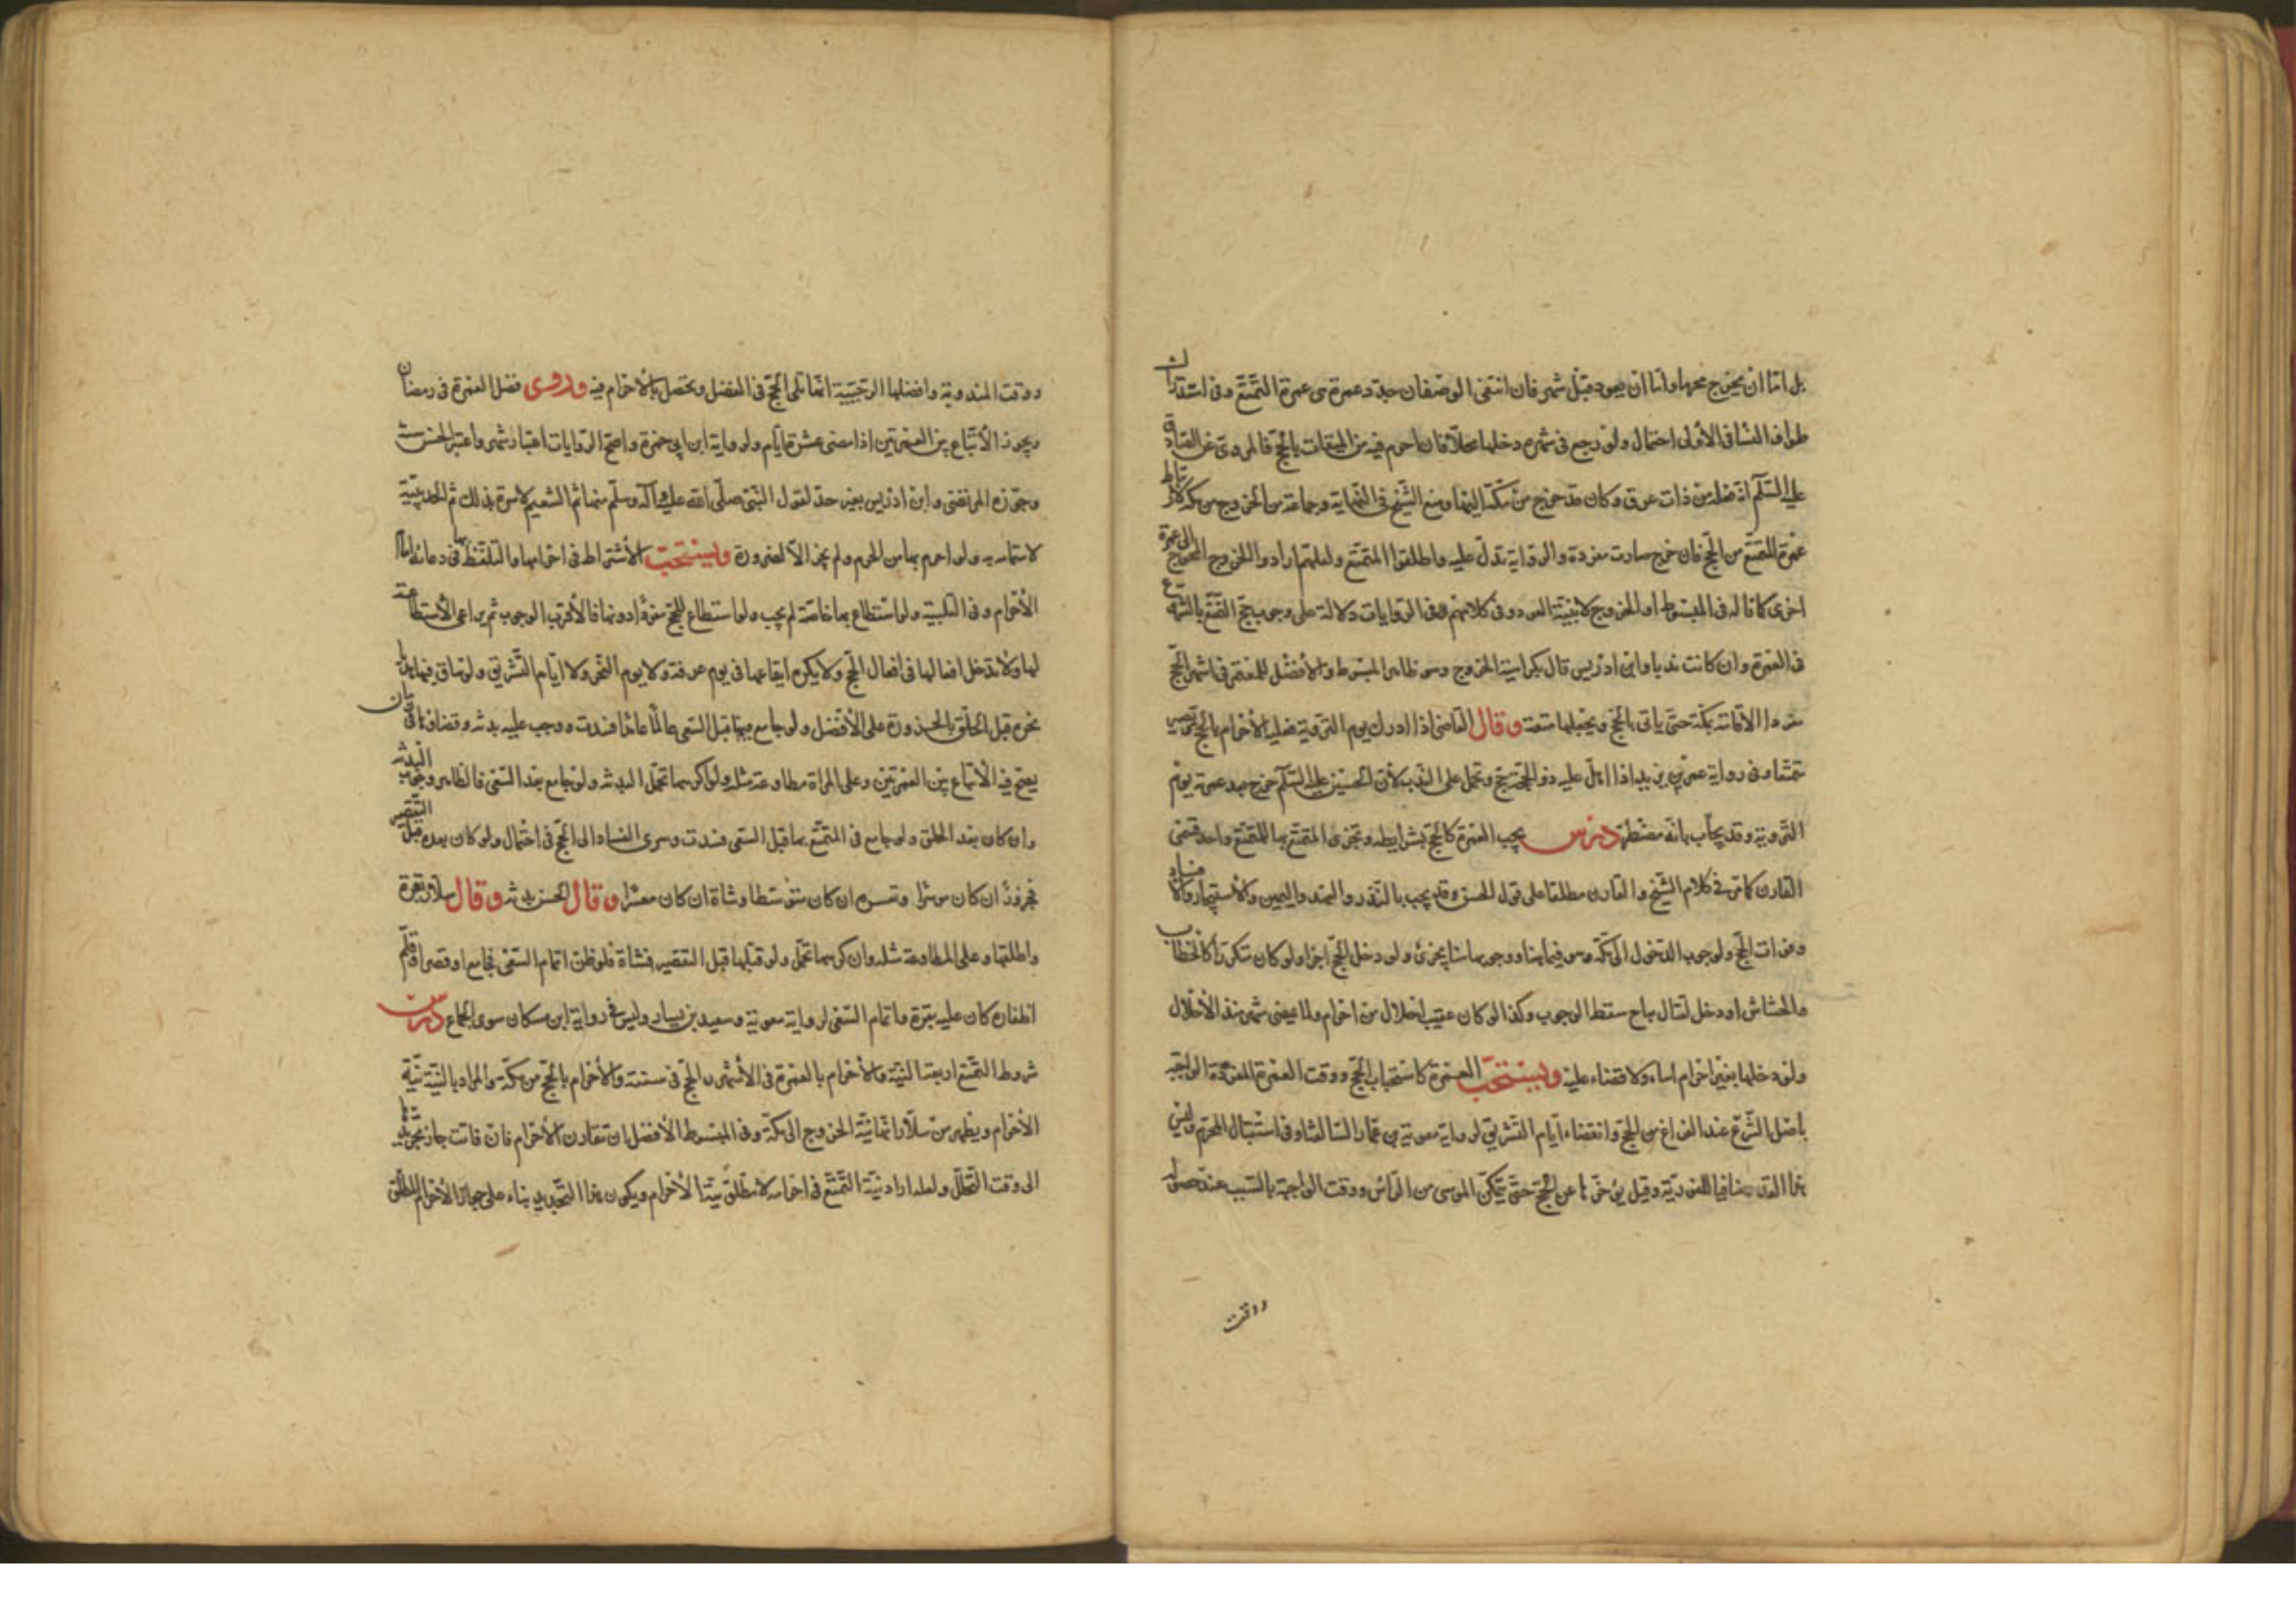 بل اما ان يخرج محرما واما ان يعود قبل شهر فان انتفى الوصفان جدد عمرة هى عمرة التمتع وفى استدراك
طواف النساء فى الأولى احتمال ولو رجع فى شهره دخلها محلا فان احرم فيه من الميقات بالحج فالمروى عن الصادق
عليه السلام انه فعله من ذات عرق وكان قد خرج من مكة اليها ومنع الشيخ فى النهاية وجماعة من الخروج من مكة لارتباط
عمرة التمتع من الحج فان خرج صارت مفردة والرواية تدل عليه واطلقوا المتمتع ولعلهم ارادوا الخروج المحوج الى عمرة
اخرى كما قاله فى المبسوط او الخروج لا بنية العود وفى كلامهم وفى الروايات دلالة على وجوب حج التمتع بالشروع
فى العمرة وان كانت ندبا وابن ادريس قال بكراهية الخروج وهو ظاهر المبسوط والأفضل للمعتمر فى اشهر الحج
مفردا الاقامة بمكة حتى ياتى بالحج ويجعلها متعة وقال القاضى اذا ادرك يوم التروية فعليه الأحرام بالحج ويصير
متمتعا وفى رواية عمر بن يزيد اذا اهل عليه ذو الحجة حج وتحمل على الندب لأن الحسين عليه السلام خرج بعد عمرته يوم
التروية وقد يجاب بانه مضطر درس يجب العمرة كالحج بشرايطه وتجزى المتمتع بها للمتمتع واحد قسمى
القارن كما مر فى كلام الشيخ والقارن مطلقا على قول الحسن وقد يجب بالنذر والعهد واليمين والأستيجار والافساد
وفوات الحج ولوجوب الدخول الى مكة وهى فيما هنا ووجوبها هنا يجزئ ولو دخل الحج اجزا ولو كان متكررا كالحطاب
والحشاش او دخل لقتال مباح سقط الوجوب وكذا لو كان عقيب احلال من احرام ولما يمض شهر منذ الأحلال
ولو دخلها بغير احرام اساء ولا قضاء عليه ويستحب العمرة كاستحباب الحج ووقت العمرة المفردة الواجبة
باصل الشرع عند الفراغ من الحج وانقضاء ايام التشريق لرواية معوية بن عمار السالفة او فى استقبال المحرم وليس
هذا القدر منافيا للفورية وقيل يؤخرها عن الحج حتى يتمكن الموسى من الرأس ووقت الواجبة بالسبب عند حصوله
ووقت
ووقت المندوبة وافضلها الرجبية انها تلى الحج فى الفضل وتحصل بالأحرام فيه وروى فضل العمرة فى رمضان
ويجوز الأتباع بين العمرتين اذا مضى عشرة ايام ولرواية ابن ابى حمزة واصح الروايات اعتبار شهر واعتبر الحسن سنة
وجوزه المرتضى وابن ادريس بغير حد لقول النبى صلى الله عليه وآله وسلم منها ثم التنعيم لامره بذلك ثم الحديبية
لاهتمامه به ولو احرم بها من الحرم ولم يجز الا لضرورة ويستحب الأشتراط فى احرامها والتلفظ بها فى دعائه امام
الأحرام وفى التلبية ولو استطاع بها خاصة لم يجب ولو استطاع للحج مفردا دونها فالأقرب الوجوب ثم يراعى الأستطاعة
لها ولا تدخل افعالها فى افعال الحج ولا يكره ايقاعها فى يوم عرفة ولا يوم النحر ولا ايام التشريق ولو ساق فيها هديا
نحره قبل الحلق بالحزورة على الأفضل ولو جامع فيها قبل السعى عالما عامدا فسدت ووجب عليه بدنة وقضاؤها فى زمان
يصح فيه الأتباع بين العمرتين وعلى المراة مطاوعة مثله ولو اكرهها تحمل البدنة ولو جامع بعد السعى فالظاهر وجوب البدنة
وان كان بعد الحلق ولو جامع فى المتمتع بها قبل السعى فسدت وسرى الفساد الى الحج فى احتمال ولو كان بعده قبل التقصير
فجزور ان كان موسرا وبقرة ان كان متوسطا وشاة ان كان معسرا وقال الحسن بدنة وقال سلار بقرة
واطلقها وعلى المطاوعة مثله وان اكرهها تحمل ولو قبلها قبل التقصير فشاة فلو ظن اتمام السعى فجامع او قصر او قلم
اظفاره كان عليه بقرة واتمام السعى لرواية معوية وسعيد بن يسار وليس فى رواية ابن مسكان سوى الجماع درس
شروط التمتع اربعة النية والأحرام بالعمرة فى الأشهر والحج فى سنته والأحرام بالحج من مكة والمراد بالنية نية
الأحرام ويظهر من سلار انها نية الخروج الى مكة وفى المبسوط الأفضل ان تقارن الأحرام فان فاتت جاز تجديدها
الى وقت التحلل ولعله اراد نية التمتع فى احرامه لا مطلق نية الأحرام ويكون هذا التجديد بناء على جواز الأحرام المطلق